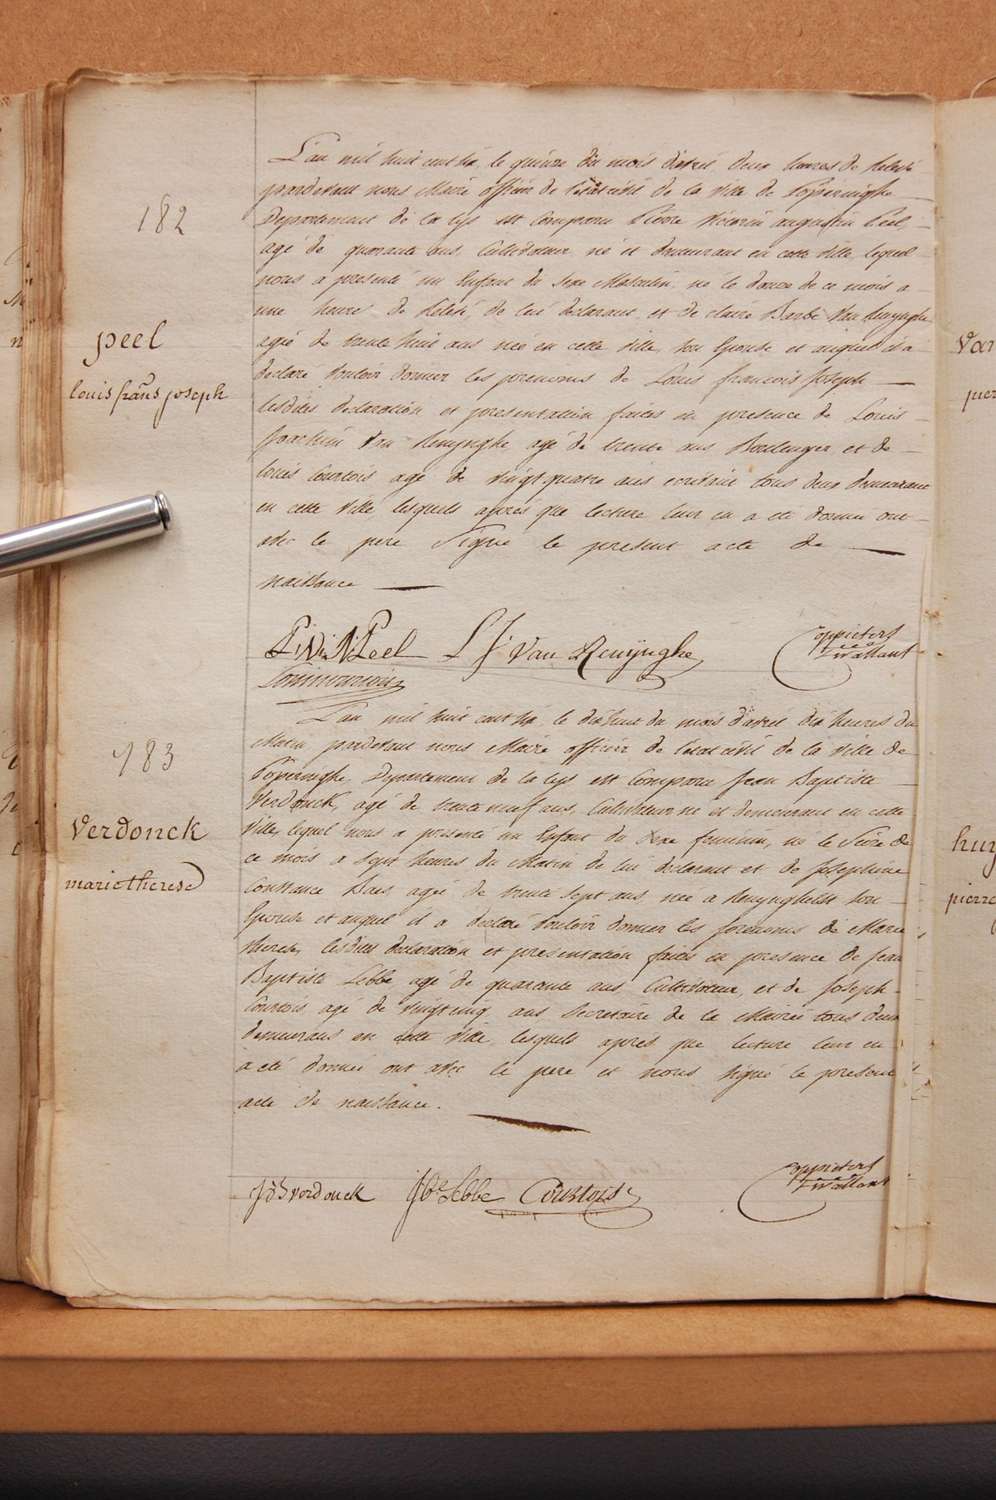 182
peel
louis frans joseph
L'an mil huit cent six, le quinze du mois d'avril deux heures de relevé
pardevant nous Maire officier de l'état civil de la ville de Poperinghe
Departement de la lys est comparu Pierre augustin Peel,
agé de quarante ans, Cultivateur né et demeurant en cette ville, lequel
nous a presenté un Enfant du sexe Masculin, né le douze de ce mois a
une heure de relevé, de lui declarant, et de claire Barbe Van Renynghe
agée de trente huit ans née en cette ville, son Epouse et auquel il a
declaré vouloir donner les prenoms de Louis francois Joseph
lesdites declaration et presentation faites en presence de Louis
Joachim Van Renynghe, agé de trente ans Boulanger, et de
louis Courtois agé de vingt quatre ans ecrivain tous deux demeurans
en cette ville lesquels après que lecture leur en a eté donnée ont
avec le pere signé le present acte de
naissance
P: V: A: Peel L J Van Renÿnghe
183
verdonck
marie therese
L'an mil huit cent six le dixhuit du mois d'avril dix heures du
Matin pardevant nous Maire officier de l'état civil de la ville de
Poperinghe, Departement de la lys est Comparu Jean Baptiste
Verdonck, agé de trente neuf ans, Cultivateur né et demeurant en cette
ville, lequel nous a presenté un Enfant du Sexe feminin, né le Seize de
ce mois a sept heures du Matin de lui declarant et de Josephine
Constance Baes agée de trente sept ans, née a Renynghelst son
Epouse et auquel il a declaré vouloir donner les prenoms de Marie
therese, lesdites declaration et presentation faites en presence de Jean
Baptiste Lebbe agé de quarante ans, Cultivateur, et de Joseph
Courtois agé de vingt cinq ans Secretaire de la Mairie tous deux
demeurans en cette ville lesquels après que lecture leur en
a eté donnée ont avec le pere et nous signé le present
acte de naissance.
J: B verdonck J be Lebbe Courtois